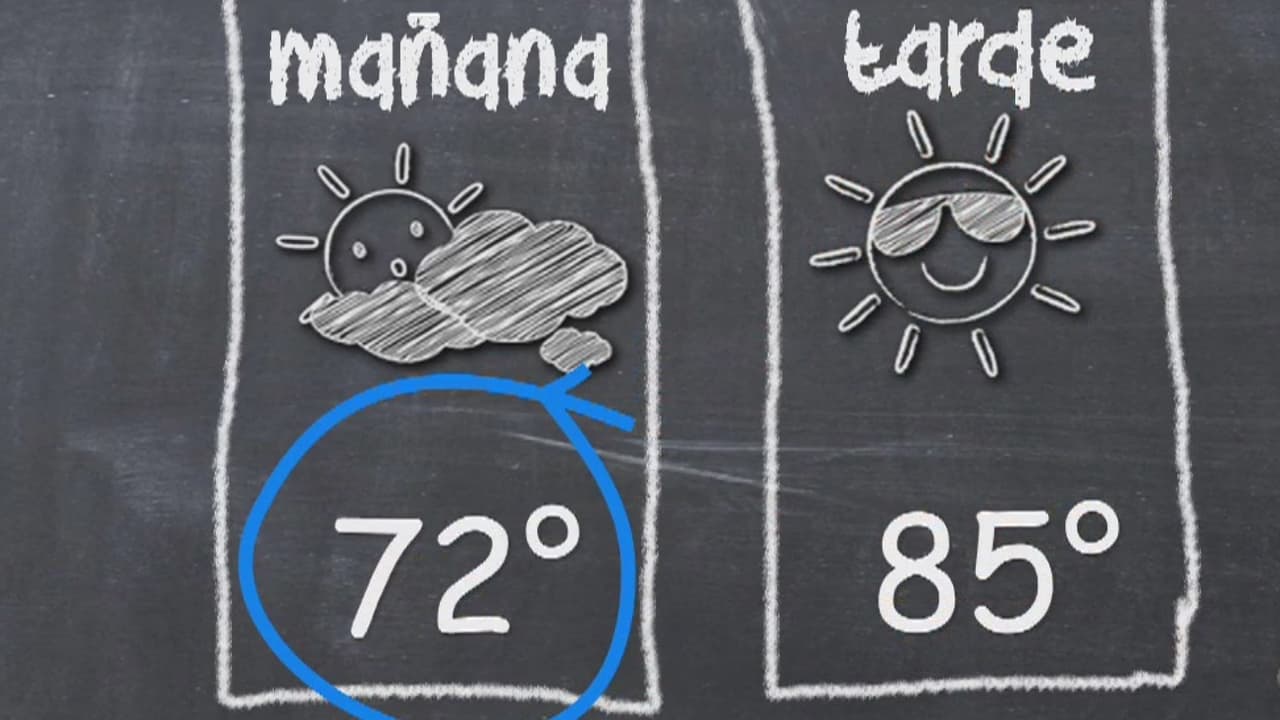 mañana
tarde
72°
85°